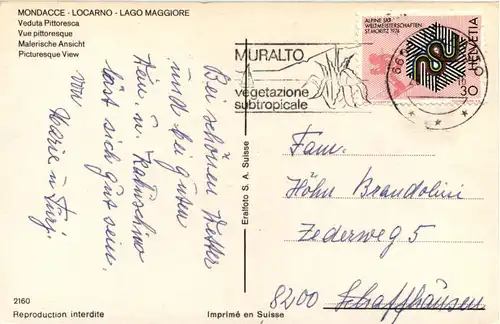 MONDACCE - LOCARNO - LAGO MAGGIORE
Veduta Pittoresca
Vue pittoresque
Malerische Ansicht
Picturesque View
MURALTO
vegetazione
subtropicale
ALPINE SKI
WELTMEISTERSCHAFTEN
ST. MORITZ 1974
HELVETIA
30
Bei schönem Wetter
und bei guten
lässt sich gut sein.
von
Marie u
Eralfoto S. A. Suisse
Fam.
Höhn Brandolini
Zederweg 5
8200 Schaffhausen
2160
Reproduction interdite
Imprimé en Suisse